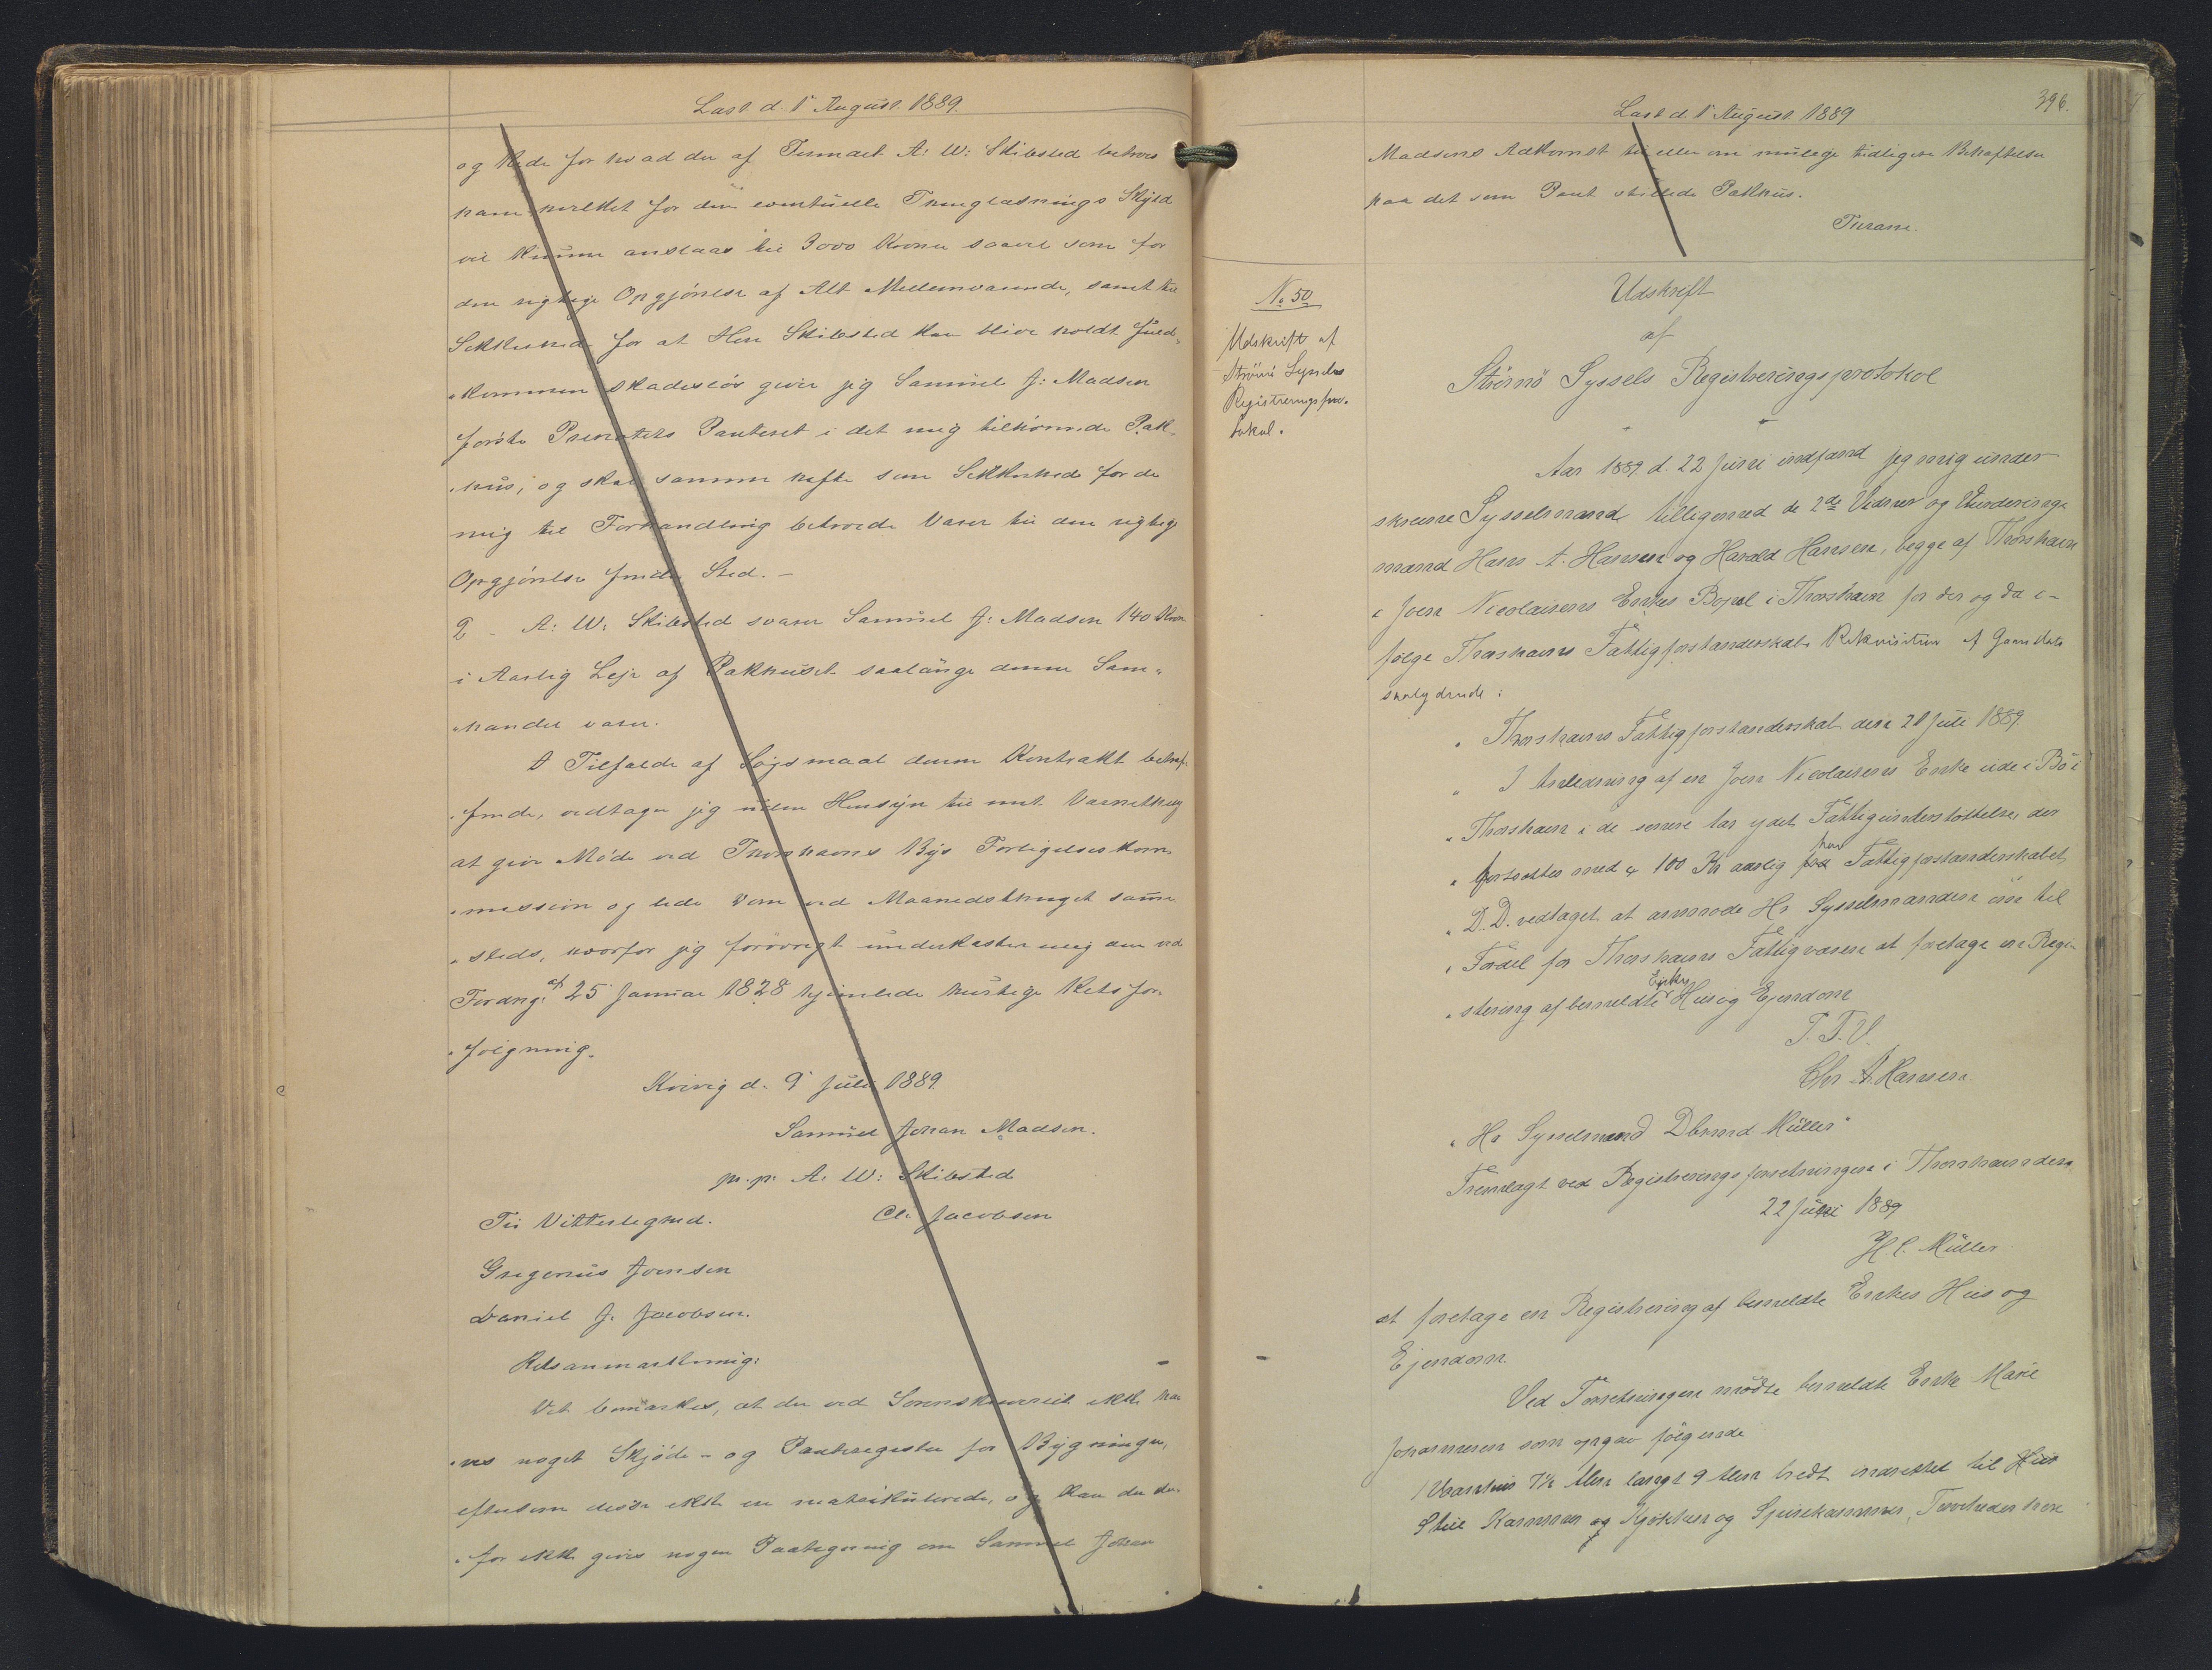 Læst d. 1' August. 1889.
og Rede for hvad der af Firmaet A: W: Skibsted betroes
ham hvilket for den eventuelle Tvinglæsnings Skyld
vil kunne anslaas til 3000 Kroner saavel som for
den rigtige Opgjörelse af Alt Mellemværende, samt til
Sikkerhed for at Herr Skibsted kan blive holdt fuld-
kommen skadeslös giver jeg Samuel J: Madsen
förste Prioritets Panteret i det mig tilhörende Pak-
hus, og skal samme hæfte som Sikkerhed for de
mig til Forhandling betroede Varer til den rigtige
Opgjörelse finder Sted. -
2 - A: W: Skibsted svarer Samuel J: Madsen 140 Kron
i Aarlig Leje af Pakhuset saalænge denne Sam-
handel varer.
I Tilfælde af Sögsmaal denne Kontrakt betræf-
fende, vedtager jeg uden Hensyn til mit Værnething
at give Möde ved Thorshavns Byes Forligelseskom-
mission og lide Dom ved Maanedsthinget samme
steds, hvorfor jeg forövrigt underkaster mig den ved
Fordng. af 25 Januar 1828 hjemlede hurtige Retsfor-
fölgning.
Kvivig d. 9' Juli 1889.
Samuel Johan Madsen.
pr. pr. A. W: Skibsted
Til Vitterlighed. Chr Jacobsen
Gregorius Joensen
Daniel J. Jacobsen.
Retsanmærkning:
Det bemærkes, at der ved Sorenskriveriet ikke ha-
ves noget Skjöde- og Panteregister for Bygninger,
eftersom disse ikke ere matrikulerede, og kan der der-
for ikke gives nogen Paategning om Samuel Johan
396.
Læst d. 1' August. 1889
Madsens Adkomst til eller om mulige tidligere Behæftelser
paa det som Pant stillede Pakhus.
No 50
Udskrift af
Strömö Syssels
Registreringspro-
tokol.
Udskrift
af
Strömö Syssels Registreringsprotokol
Aar 1889 d. 22 Juni indfand jeg mig under-
skrevne Sysselmand tilligemed de 2de Vidner og Vurderings
mænd Hans A. Hansen og Harald Hansen, begge af Thorshavn
i Joen Nicolaisens Enkes Bopæl i Thorshavn for der og da i-
fölge Thorshavns Fattigforstanderskabs Rekvisition af Gaars Dato
saalydende:
" Thorshavns Fattigforstanderskab den 21 Juni 1889.
" I Anledning af en Joen Nicolaisens Enke ude i Bö i
" Thorshavn i de senere Aar ydet Fattigunderstöttelse, der
" fortsættes med c 100 Kr aarlig har Fattigforstanderskabet
" D. D. vedtaget at anmode Hr Sysselmanden om til
" Fordel for Thorshavns Fattigvæsen at foretage en Regi-
" strering af bemeldte Enkes Hus og Ejendom
T. F. V.
Chr A. Hansen.
" Hr Sysselmand Dbrmd. Müller"
Fremlagt ved Registreringsforretningen i Thorshavn den
22 Juni 1889
H C. Müller.
at foretage en Registrering af bemeldte Enkes Hus og
Ejendom.
Ved Forretningen mödte bemeldte Enke Marie
Johannesen som opgav fölgende
1 Vaanhus 7½ Alen langt 9 Alen bredt indrettet til
Stue Kammer og Kjökken og Spisekammer,